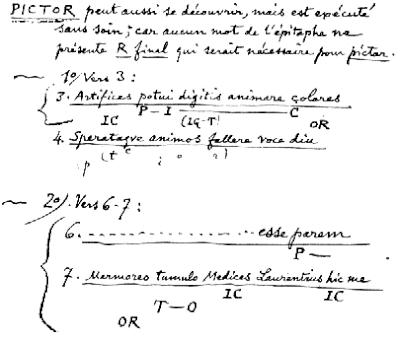 PICTOR peut aussi se découvrir, mais est exécuté
sans soin; car aucun mot de l'épitaphe ne
présente R final qui serait nécessaire pour pictor.
1o/ Vers 3:
3. Artifices potui digitis animare colores
P — I C
IC (IG-T) OR
4. Sperataqve animos fallere voce diu
p (t c i o r)
2o/. Vers 6-7:
6. .................... esse parem
P —
7. Marmoreo tumulo Medices Laurentius hic me
IC IC
T — O
OR